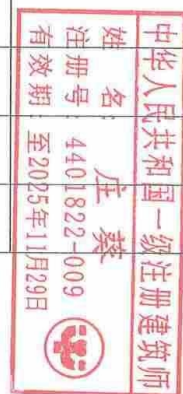 中华人民共和国一级注册建筑师
姓 名： 庄葵
注册号： 4401822-009
有效期： 至2025年11月29日